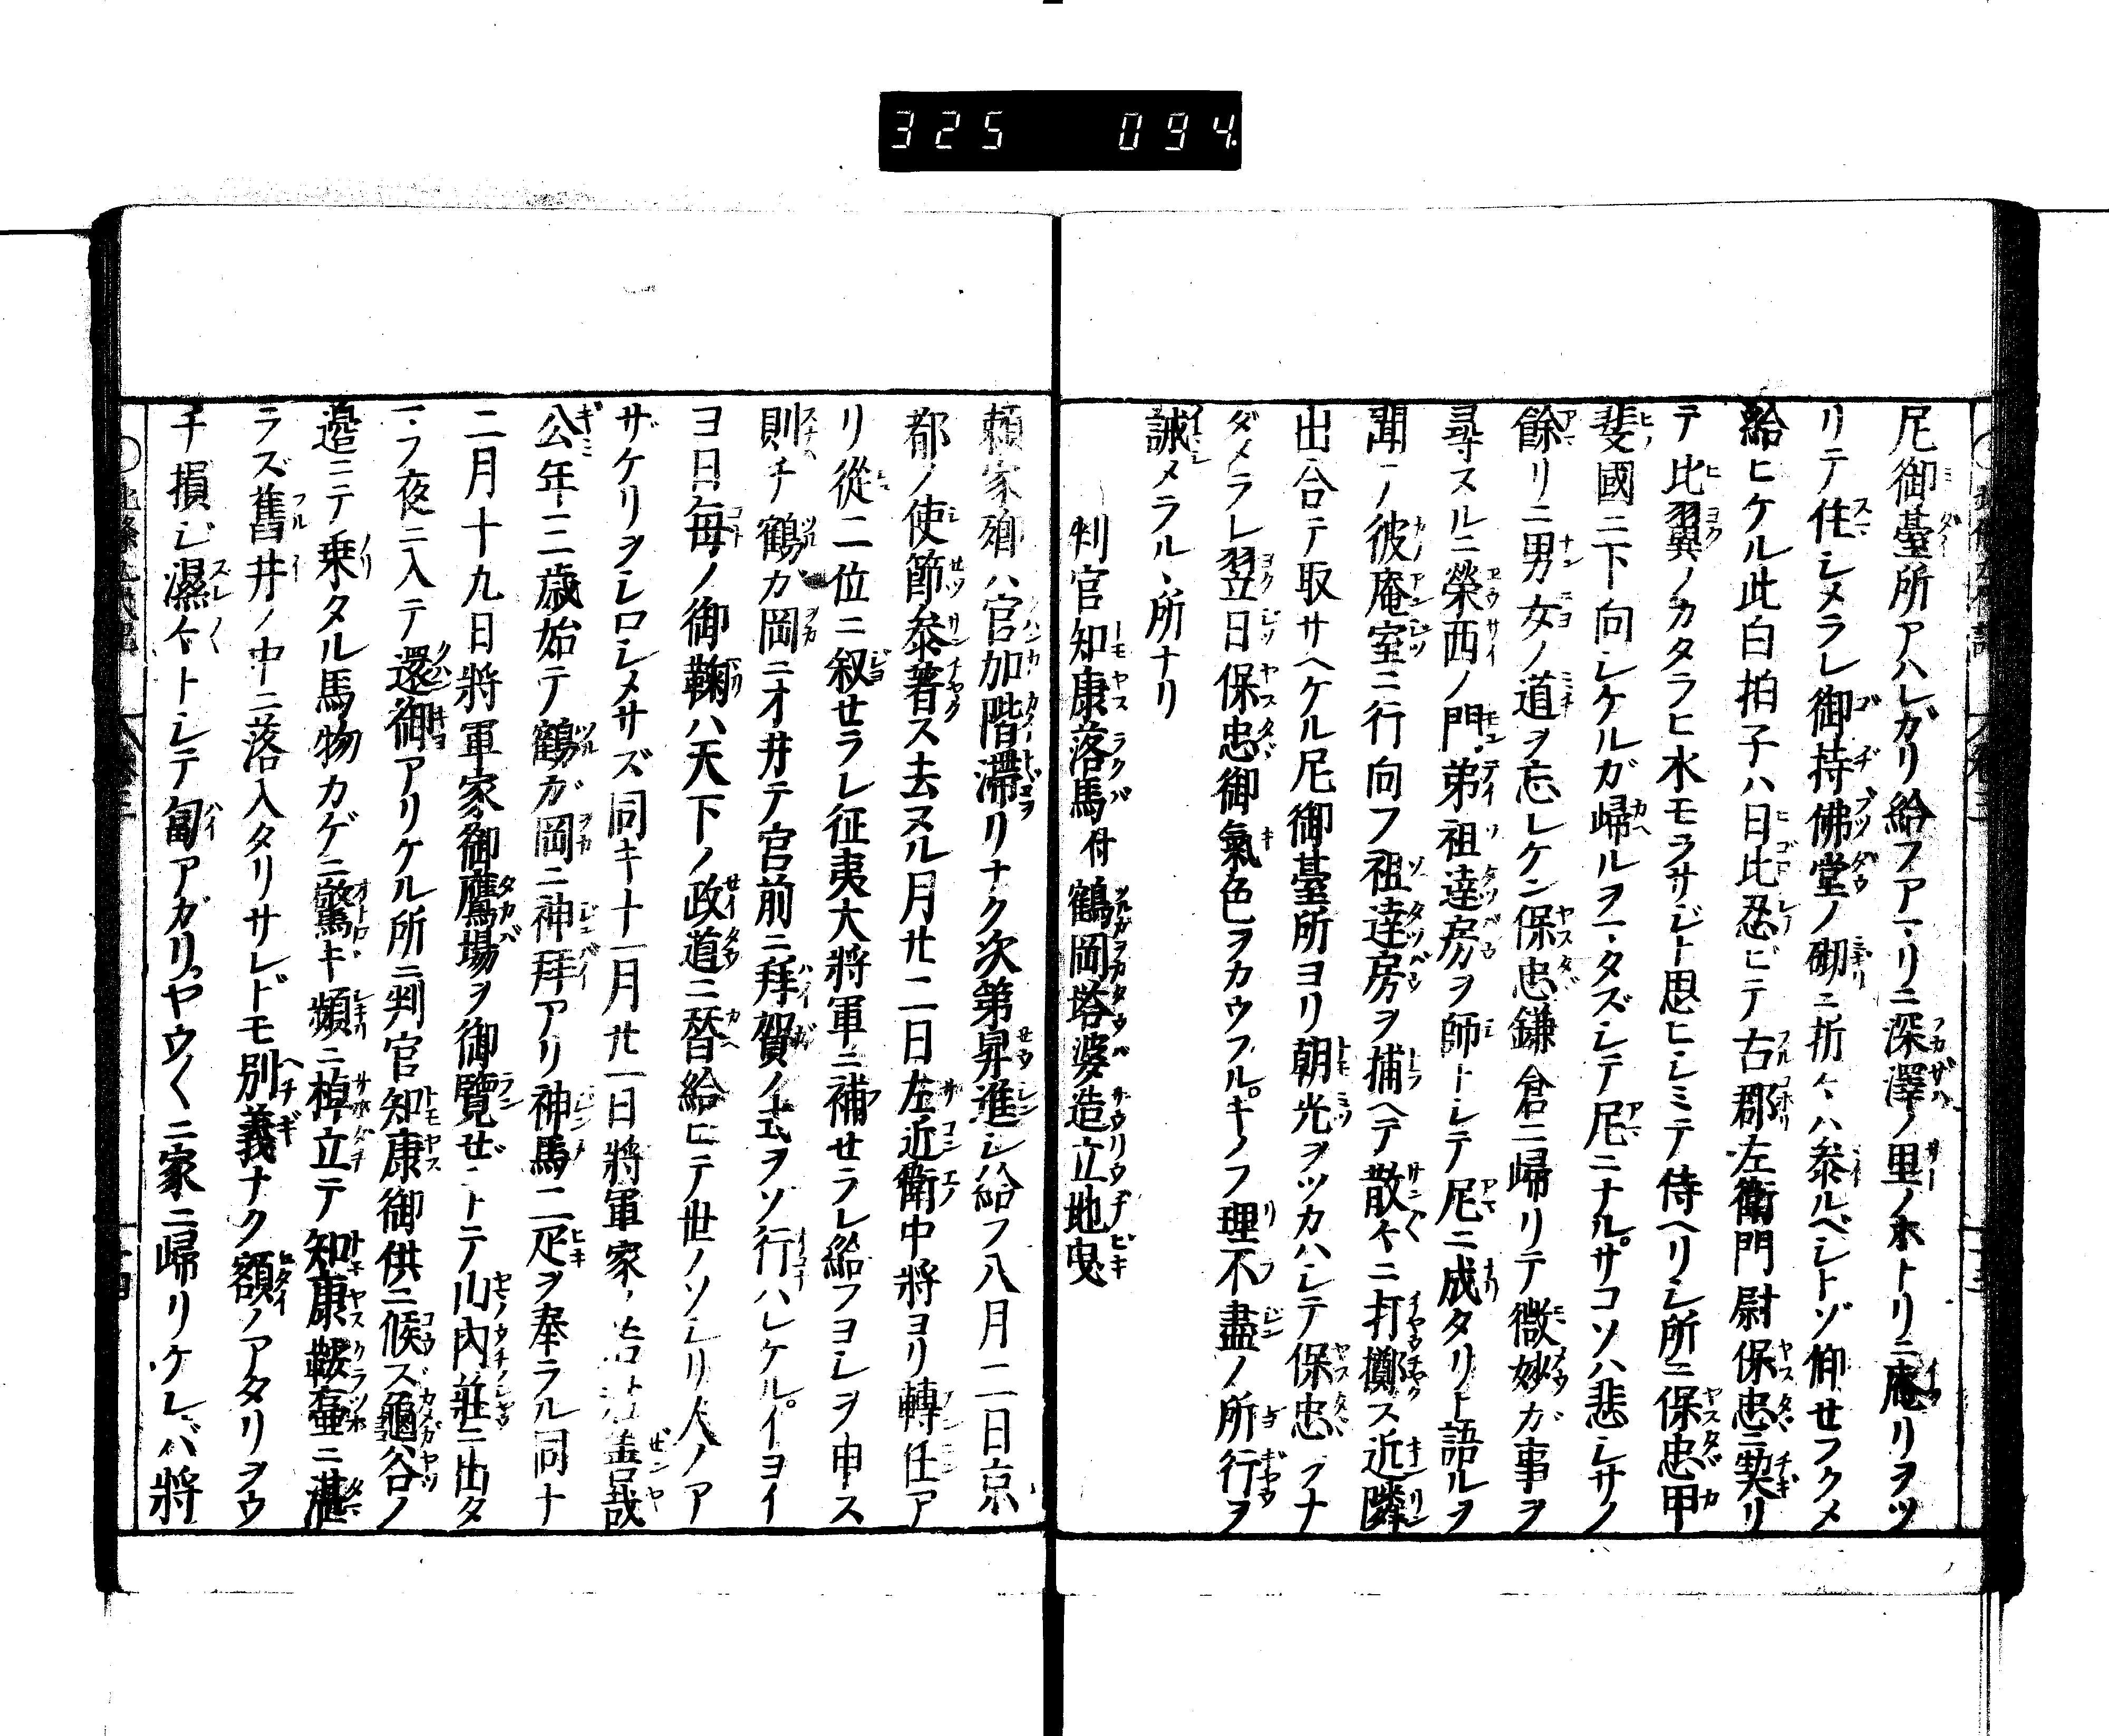 325 094
尼御臺所アハレガリ給フアマリニ深澤ノ里ノホトリニ庵リヲツ
リテ住シメラレ御持佛堂ノ砌ニ折々ハ參ルベシトゾ仰セフクメ
給ヒケル此白拍子ハ日比忍ビテ古郡左衛門尉保忠ニ契リ
テ比翼ノカタラヒ水モラサジト思ヒシミテ侍ヘリシ所ニ保忠甲
斐國ニ下向シケルガ歸ルヲマタズシテ尼ニナルサコソハ悲シサノ
餘リニ男女ノ道ヲ忘レケン保忠鎌倉ニ歸リテ微妙ガ事ヲ
尋スルニ榮西ノ門弟祖達房ヲ師トシテ尼ニ成タリト語ルヲ
聞マノ彼庵室ニ行向フ祖達房ヲ捕ヘテ散々ニ打擲ス近隣
出合テ取サヘケル尼御臺所ヨリ朝光ヲツカハシテ保忠ヲナ
ダメラレ翌日保忠御氣色ヲカウフルキノフ理不盡ノ所行ヲ
誡メラルヽ所ナリ
判官知康落馬付鶴岡塔婆造立地曳
頼家殿ハ官加階滯リナク次第昇進シ給フ八月二日京
都ノ使節參著ス去ヌル月廿二日左近衛中將ヨリ轉任ア
リ從二位ニ叙セラレ征夷大將軍ニ補セラレ給フヨシヲ申ス
則チ鶴カ岡ニオ井テ官前ニ拜賀ノ式ヲソ行ハレケルイヨイ
ヨ日毎ノ御鞠ハ天下ノ政道ニ替給ヒテ世ノソシリ人ノア
ザケリヲシロシメサズ同キ十一月廿一日將軍家ノ善哉
公年三歳始テ鶴ガ岡ニ神拜アリ神馬二疋ヲ奉ラル同ナ
二月十九日將軍家御鷹場ヲ御覽ゼントテ山内莊ニ出タ
マフ夜ニ入テ還御アリケル所ニ判官知康御供ニ候ズ龜谷ノ
邉ニテ乗タル馬物カゲニ驚キ頻ニ棹立テ知康鞍壷ニ湛
ラズ舊井ノ中ニ落入タリサレドモ別義ナク額ノアタリヲウ
チ損ジ濕々トシテ匐アガリヤウ〱ニ家ニ歸リケレバ將